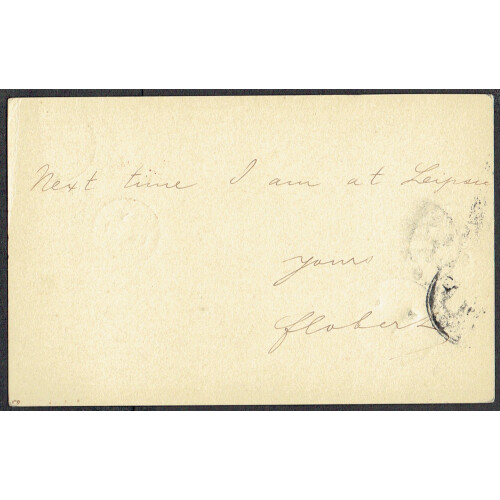 Next time I am at Leipsic
yours
flobert